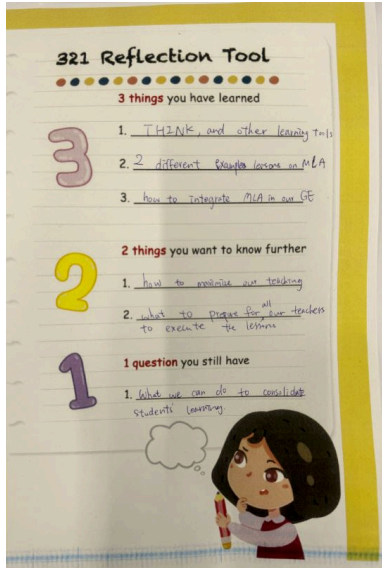 321 Reflection Tool
3 things you have learned
3
1. THINK, and other learning Tools
2. 2 different examples lessons on MLA
3. how to integrate MLA in our GE
2 things you want to know further
2
1. how to maximise our teaching
2. what to prepare for all our teachers
to execute the lessons
1 question you still have
1
1. What we can do to consolidate
students' learning.